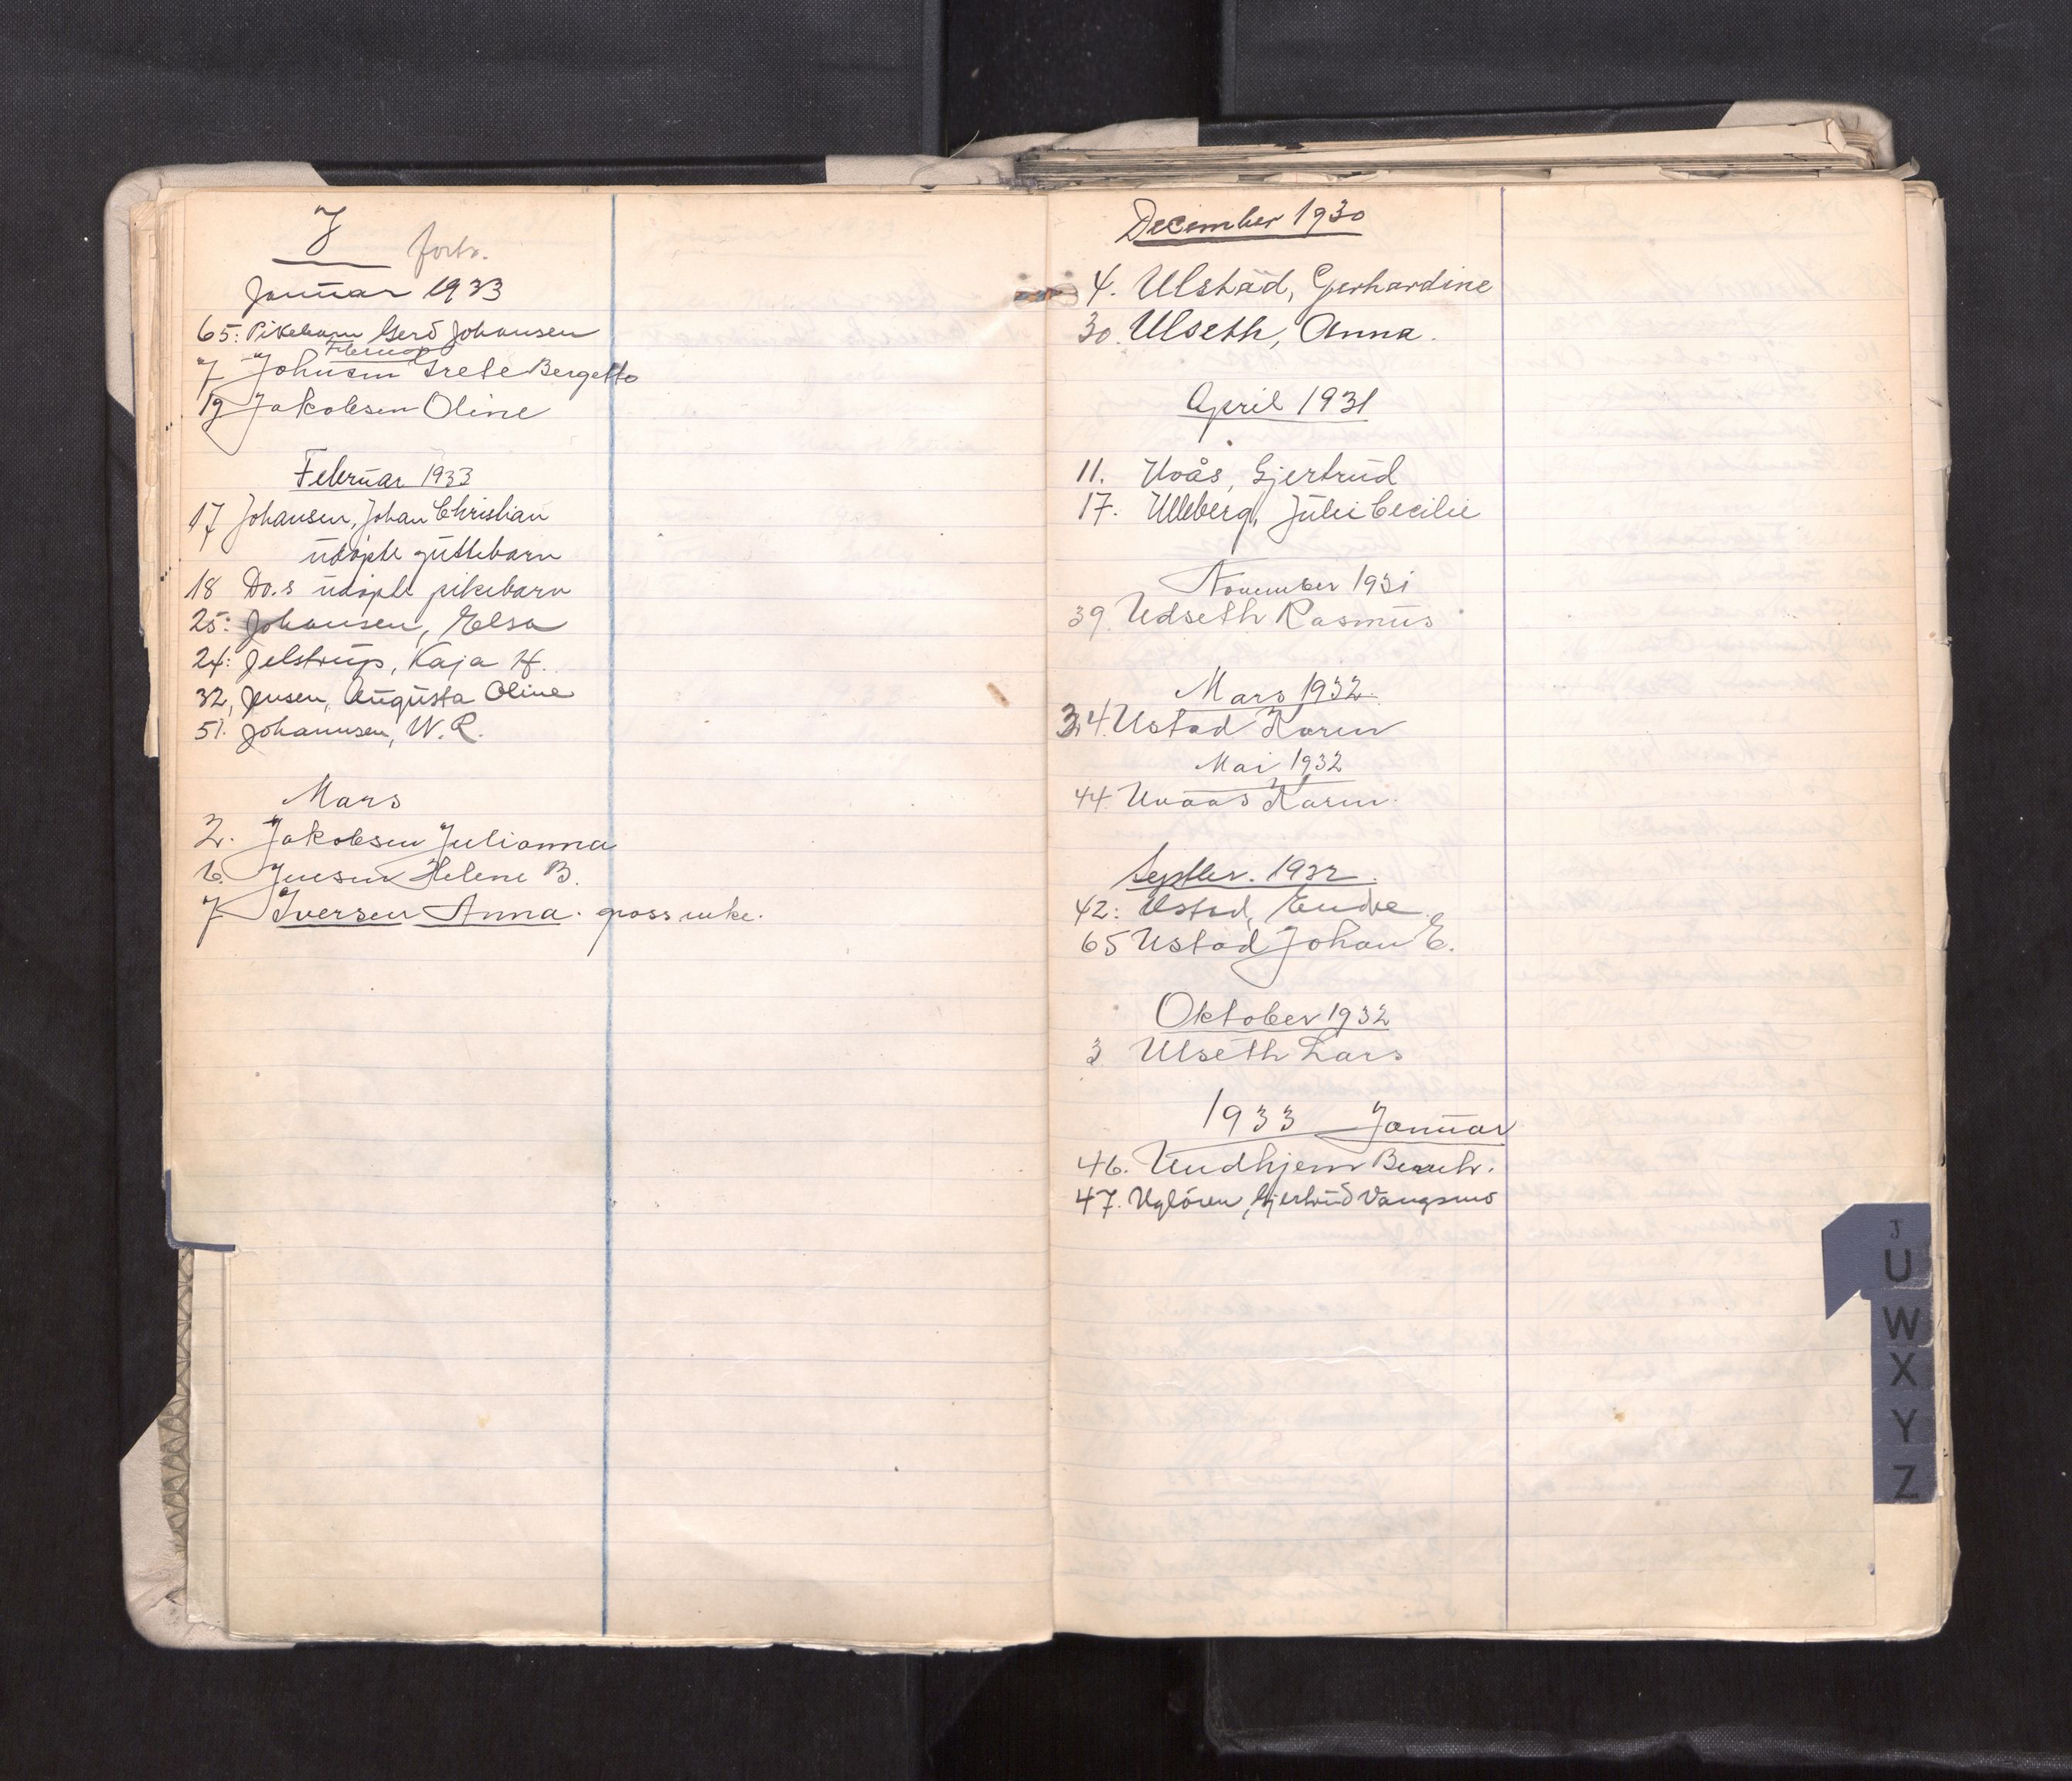 J forts.
Januar 1933
65: Pikebarn Gerd Johansen
Februar
7 Johnsen Grete Bergette
19 Jakobsen Oline
Februar 1933
17 Johansen, Johan Christian
udöpte guttebarn
18 Do.s udöpte pikebarn
25: Johansen, Elsa
24: Jelstrup, Kaja H.
32, Jensen, Augusta Oline
51. Johannsen, W. R.
Mars
2. Jakobsen Julianna
6. Jensen Helene B.
7 Iversen Anna. grossenke.
December 1930
4. Ulstad, Gerhardine
30. Ulseth, Anna.
April 1931
11. Uvås, Gjertrud
17. Ulleberg, Julie Cecilie
November 1931
39. Udseth Rasmus
Mars 1932
34. Ustad Karen
Mai 1932
44. Uvaas Karen.
Septbr. 1932.
42: Ustad, Endre
65 Ustad Johan E.
Oktober 1932
3 Ulseth Lars
1933 Januar
46. Undhjem
47. Uglören, Gjertrud Vangsmo
J
U
W
X
Y
Z